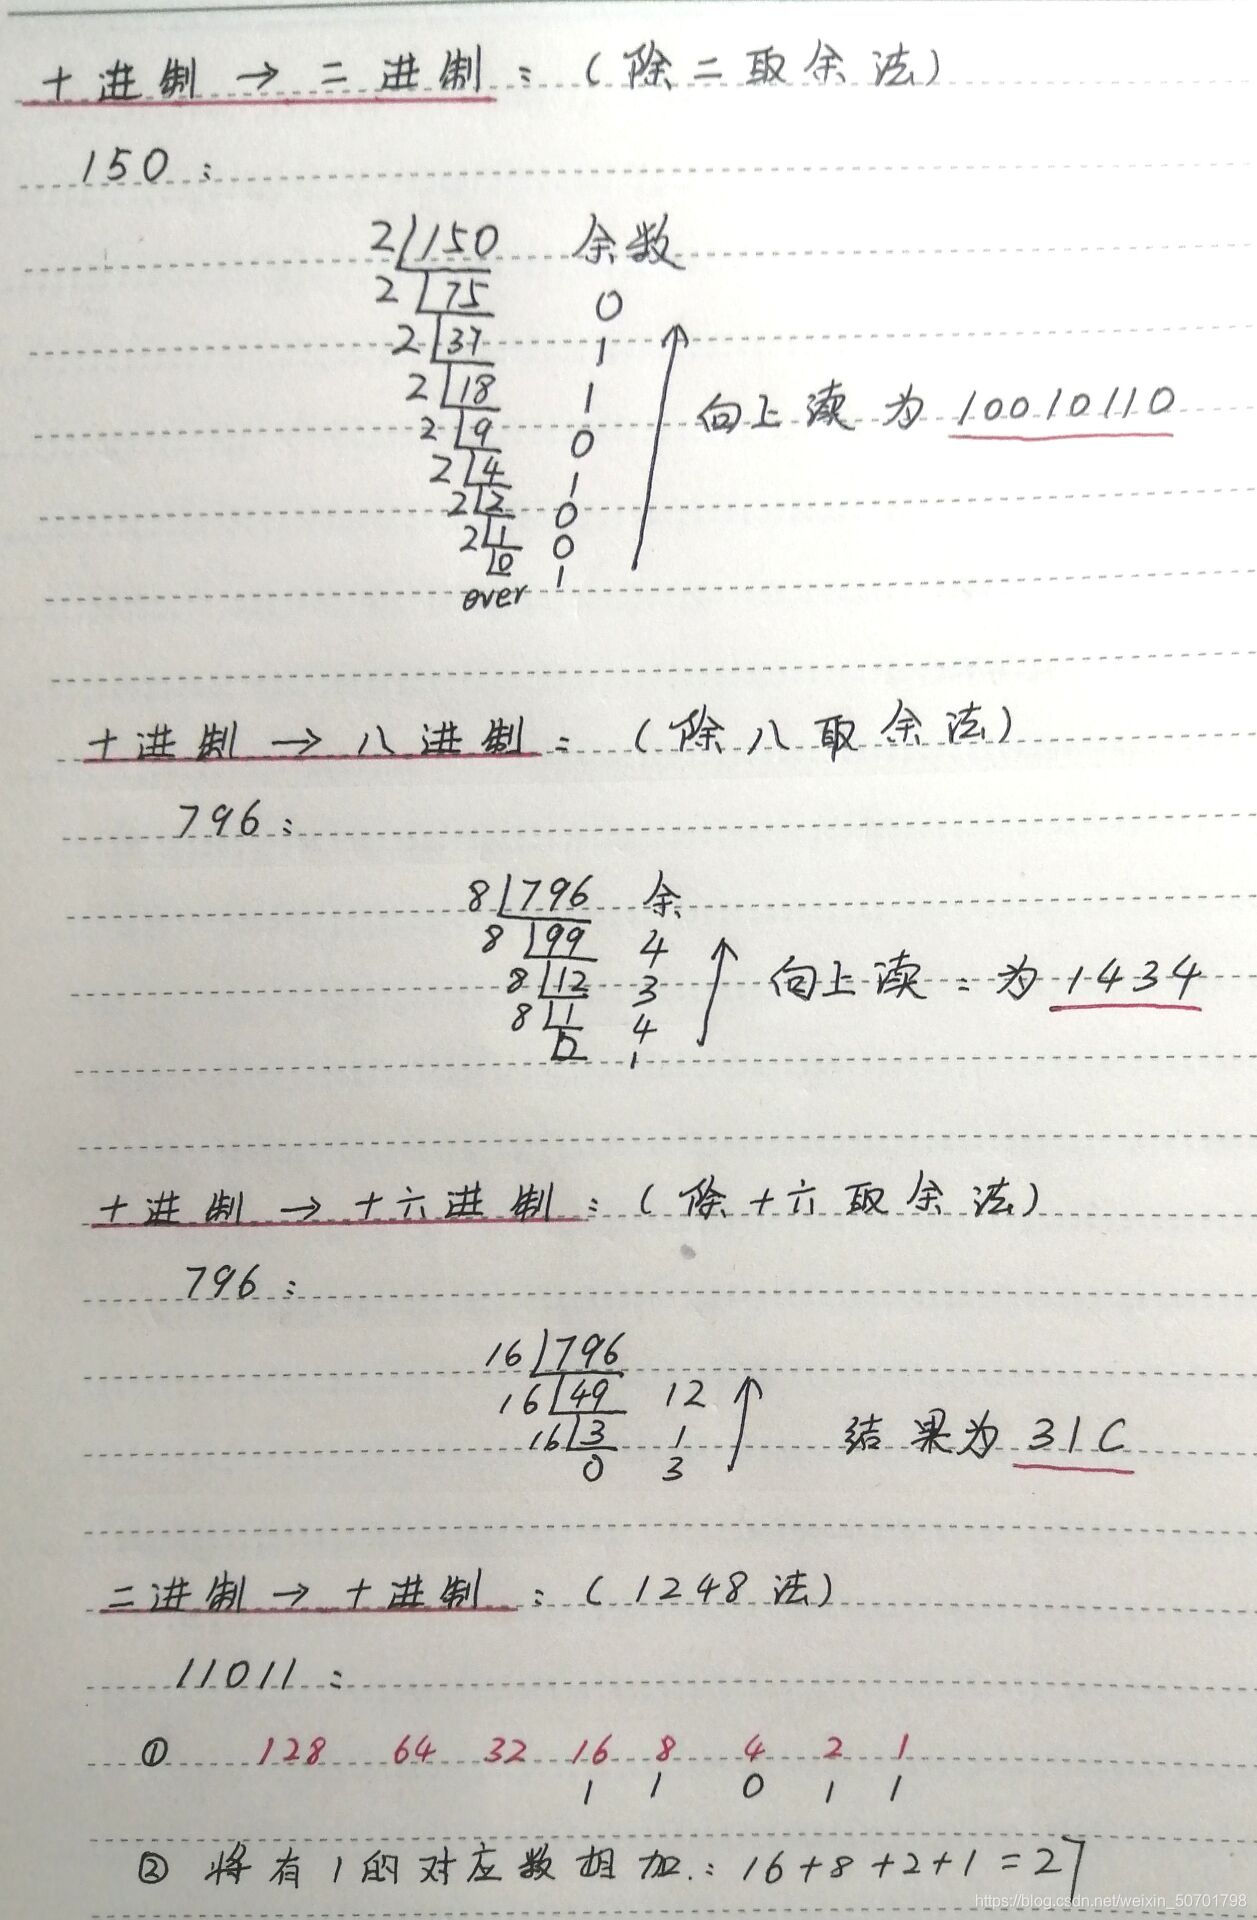 十进制 → 二进制：（除二取余法）
150：
2 150 余数
2 75 0
2 37 1
2 18 1
2 9 0
2 4 1
2 2 0
2 1 0
0 1
over
向上读为 10010110
十进制 → 八进制：（除八取余法）
796：
8 796 余
8 99 4
8 12 3
8 1 4
0 1
向上读：为 1434
十进制 → 十六进制：（除十六取余法）
796：
16 796
16 49 12
16 3 1
0 3
结果为 31C
二进制 → 十进制：（1248法）
11011：
① 128 64 32 16 8 4 2 1
1 1 0 1 1
② 将有1的对应数相加：16+8+2+1=27
https://blog.csdn.net/weixin_50701798